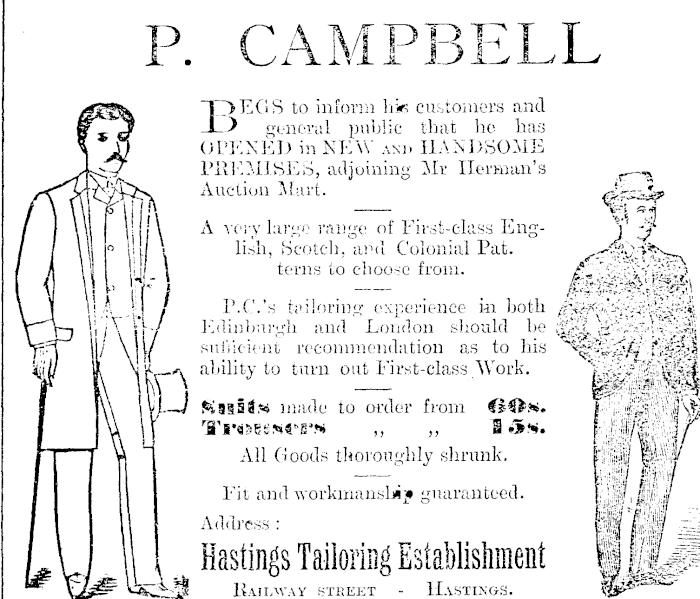 P. CAMPBELL
BEGS to inform his customers and
general public that he has
OPENED in NEW AND HANDSOME
PREMISES, adjoining Mr Herman's
Auction Mart.
A very large range of First-class Eng-
lish, Scotch, and Colonial Pat.
terns to choose from.
P.C.'s tailoring experience in both
Edinburgh and London should be
sufficient recommendation as to his
ability to turn out First-class Work.
Suits made to order from 60s.
Trousers ,, ,, 15s.
All Goods thoroughly shrunk.
Fit and workmanship guaranteed.
Address :
Hastings Tailoring Establishment
RAILWAY STREET - HASTINGS.